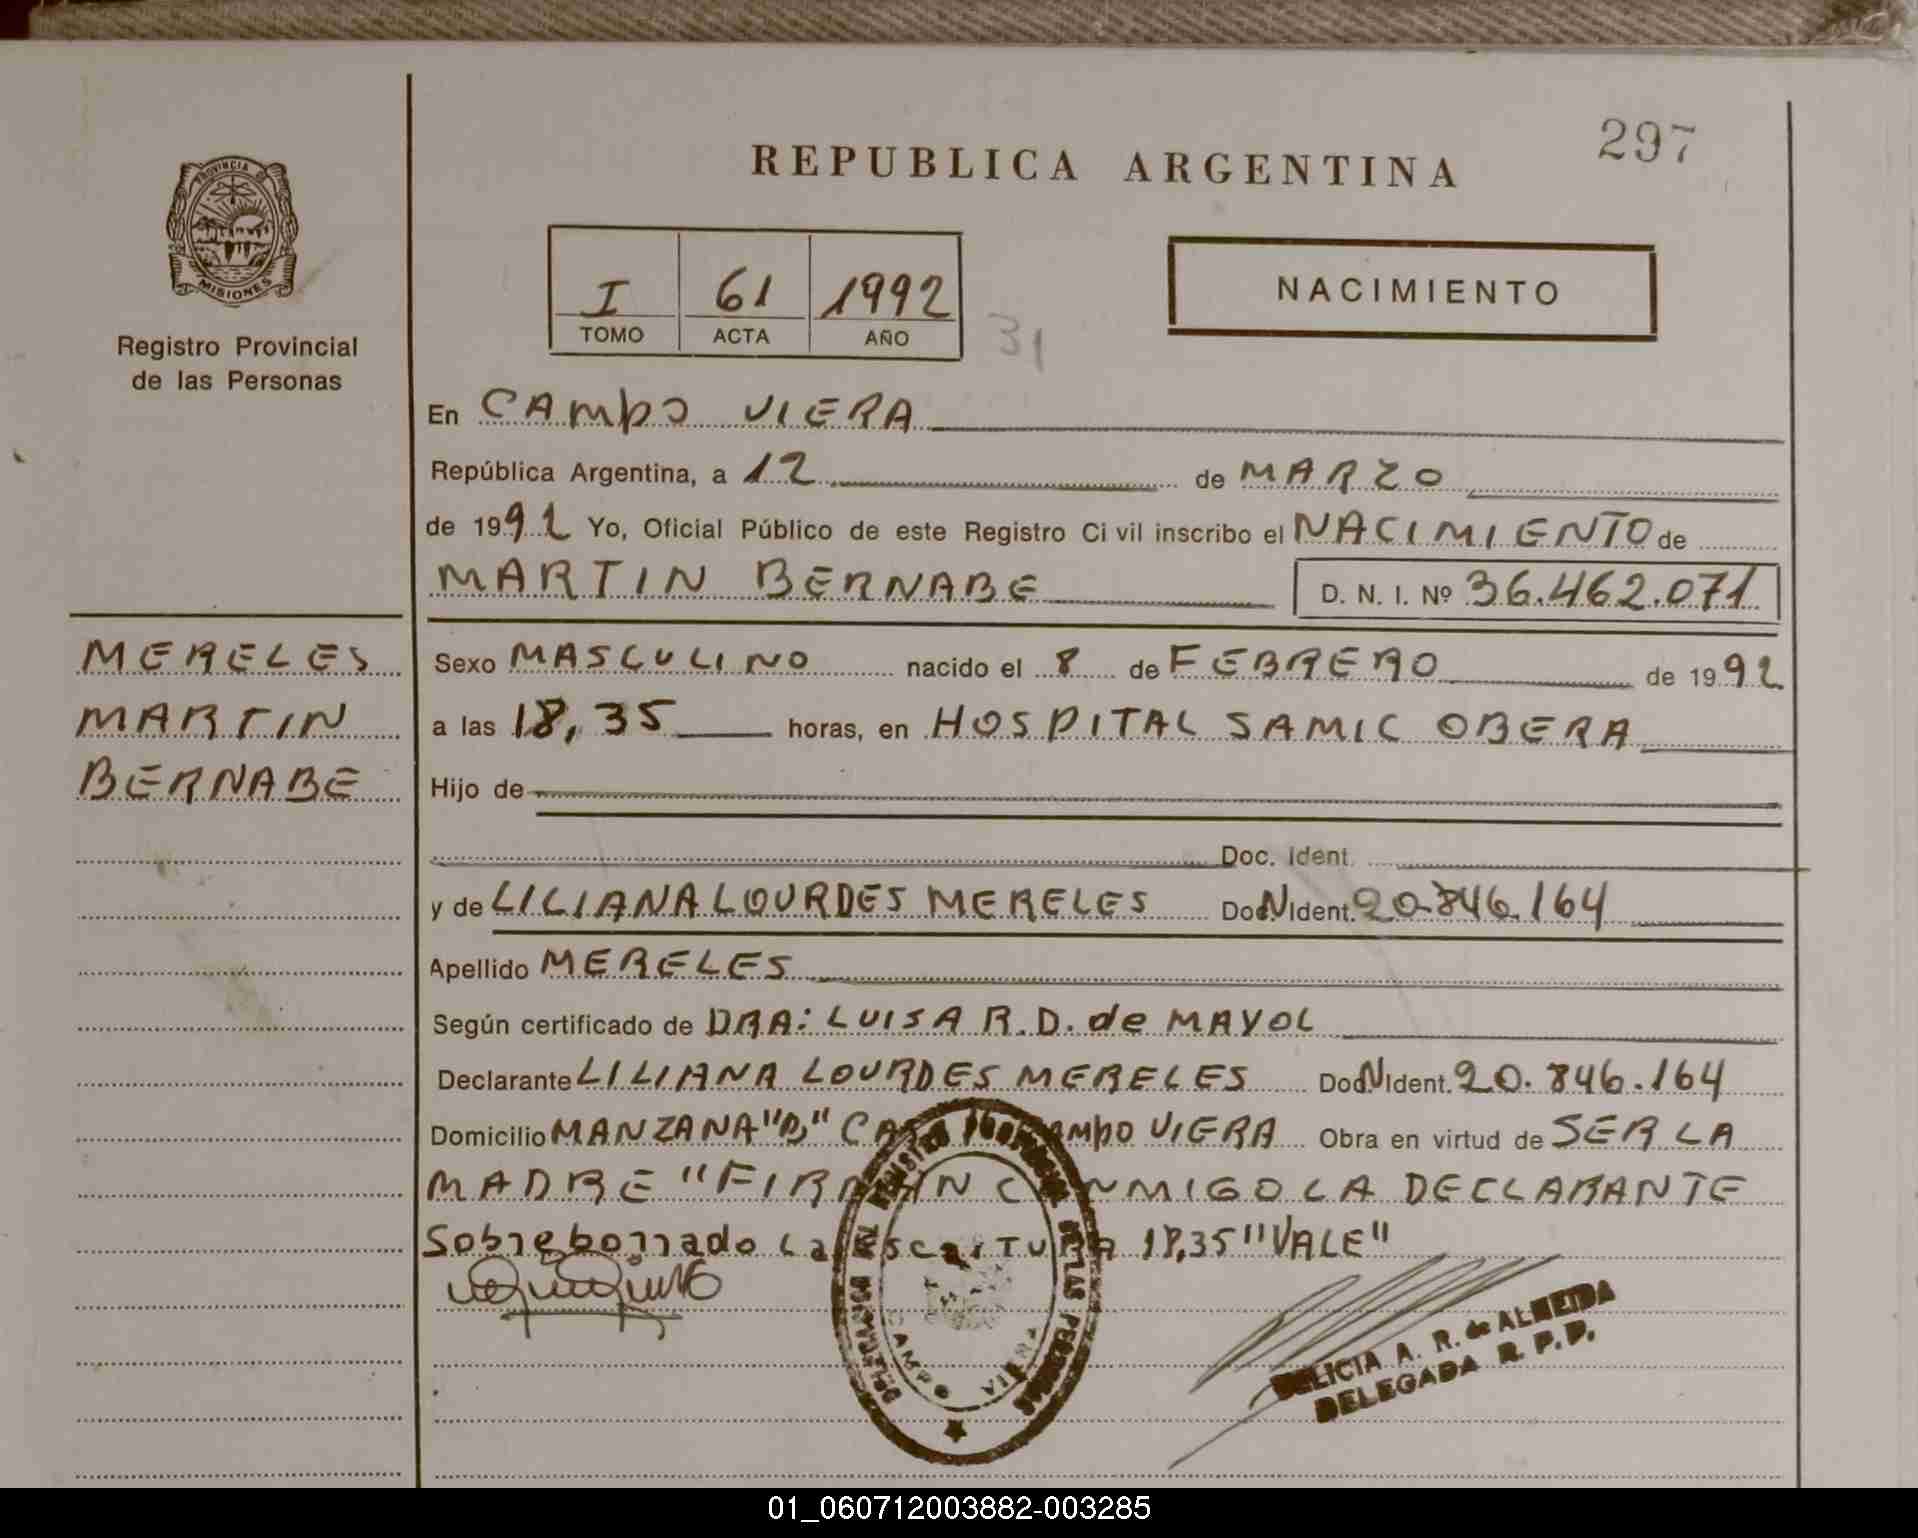 297
REPUBLICA ARGENTINA
PROVINCIA DE
MISIONES
Registro Provincial
de las Personas
I 61 1992
TOMO ACTA AÑO
31
NACIMIENTO
En CAMPO VIERA
República Argentina, a 12 de MARZO
de 1992 Yo, Oficial Público de este Registro Civil inscribo el NACIMIENTO de
MARTIN BERNABE D. N. I. Nº 36.462.071
MERELES
MARTIN
BERNABE
Sexo MASCULINO nacido el 8 de FEBRERO de 1992
a las 18,35 horas, en HOSPITAL SAMIC OBERA
Hijo de
Doc. Ident.
y de LILIANA LOURDES MERELES DocN Ident. 20.846.164
Apellido MERELES
Según certificado de DRA: LUISA R. D. de MAYOL
Declarante LILIANA LOURDES MERELES DocN Ident. 20.846.164
Domicilio MANZANA CAMPO VIERA Obra en virtud de SER LA
MADRE "FIRMAN CONMIGO LA DECLARANTE
Sobreborrado La Escritura 18,35 "VALE"
REGISTRO PROVINCIAL DE LAS PERSONAS
CAMPO VIERA
DELICIA A. R. de ALMEIDA
DELEGADA R. P. P.
01_060712003882-003285